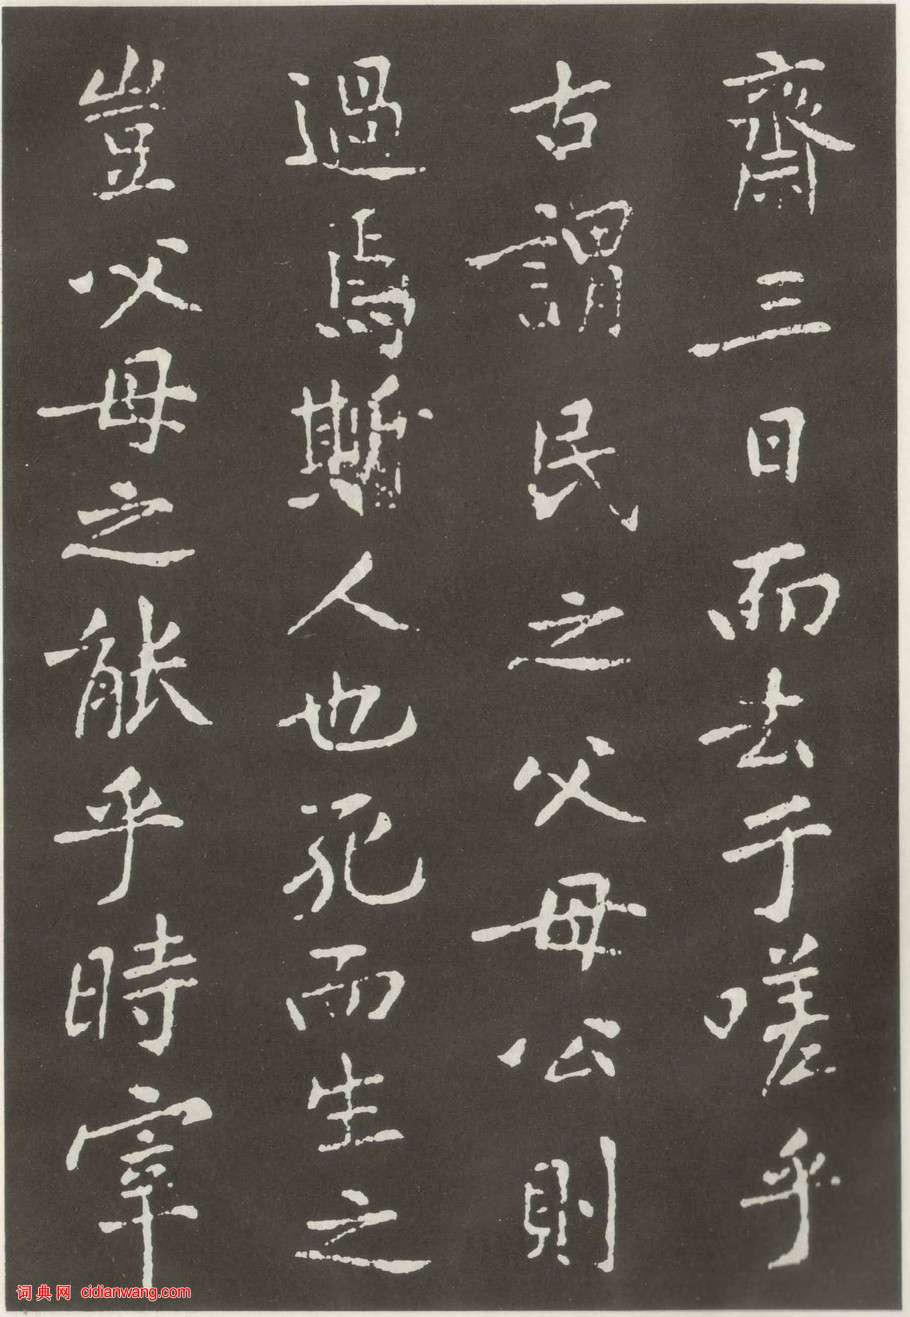 齋三日而去于嗟乎
古謂民之父母公則
過焉斯人也死而生之
豈父母之能乎時宰
词典网 cidianwang.com